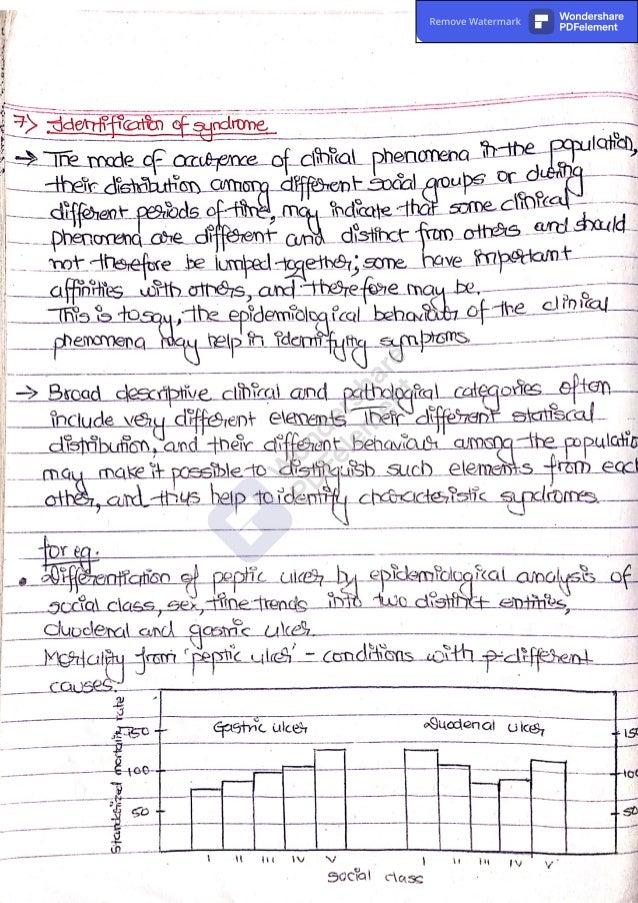 Remove Watermark
Wondershare
PDFelement
7) Identification of syndrome
→ The mode of occurence of clinical phenomena in the population,
their distribution among different social groups or during
different periods of time, may indicate that some clinical
phenomena are different and distinct from others and should
not therefore be lumped together; some have important
affinities with others, and therefore may be.
This is to say, the epidemiological behaviour of the clinical
phenomena may help in identifying symptoms.
→ Broad descriptive clinical and pathological categories often
include very different elements Their different statiscal
distribution, and their different behaviour among the populatio
may make it possible to distinguish such elements from eacl
other, and thus help to identify characteristic syndromes.
for eg.
• Differentiation of peptic ulcer by epidemiological analysis of
social class, sex, time trends into two distinct entities,
duodenal and gastric ulcer.
Mortality from 'peptic ulcer' - conditions with different
causes.
Standerized mortality rate
150
100
50
Gastric ulcer
Duodenal ulcer
150
100
50
I II III IV V I II III IV V
social class
Wondershare
PDFelement